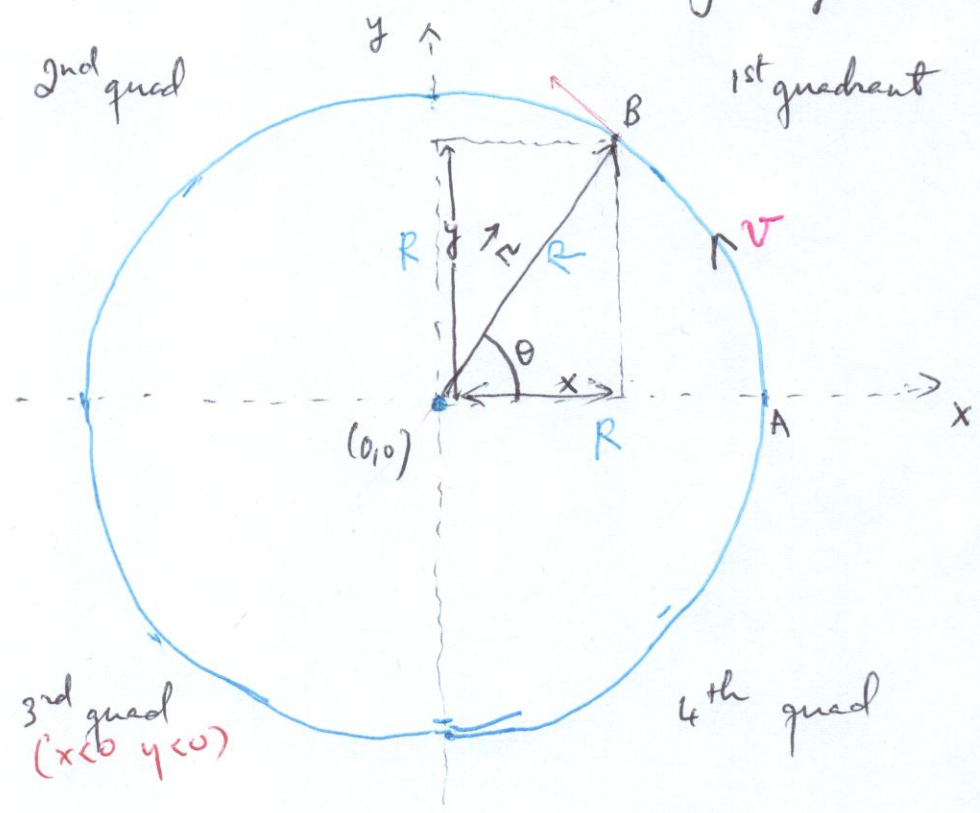 y
2nd quad
1st quadrant
B
R
y
r
R
v
θ
x
x
(0,0)
R
A
3rd quad
(x<0 y<0)
4th quad